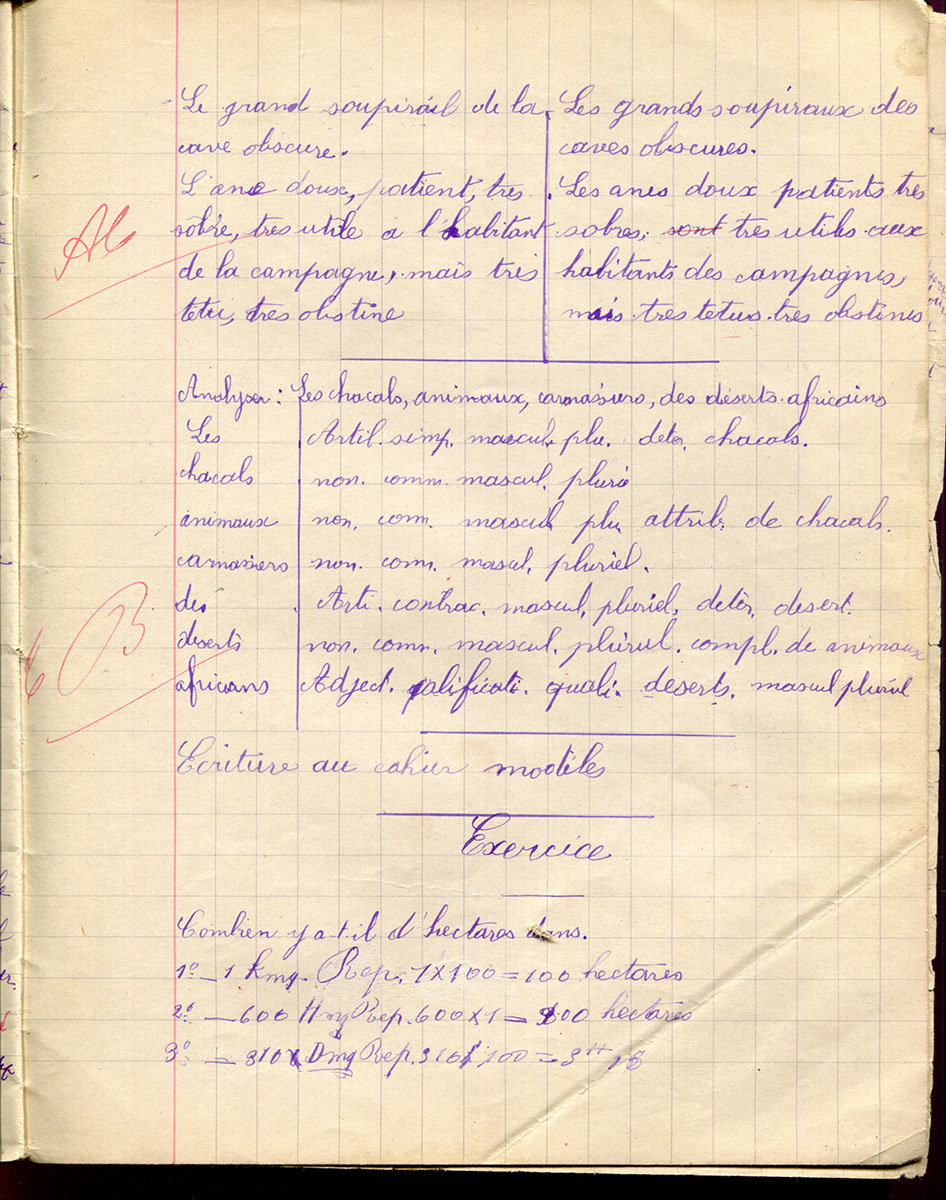 Le grand soupirail de la
cave obscure.
L'ane doux, patient, tres
sobre, tres utile a l'habitant
de la campagne, mais tres
tetu, tres obstine
Les grands soupiraux des
caves obscures.
Les anes doux patients tres
sobres, sont tres utiles aux
habitants des campagnes,
mais tres tetus tres obstines
Analyser : Les chacals, animaux, carnassiers, des déserts africains
Les Artil. simp. mascul. plu. deter. chacals.
chacals non. comm. mascul. plurie
animaux non. com. mascul plu attrib. de chacals.
carnassiers non. comm. mascul. pluriel.
des Arti. contrac. mascul, pluriel, detèr. desert.
deserts non. comm. mascul. plúriul. compl. de animaux
africans Adject. qalificati. quali. deserts, mascul pluriul
B
Ecriture au cahier modèles
Exercice
Combien y a-t-il d'hectares dans.
1º — 1 Kmq. Rep. 1 x 100 = 100 hectares
2º — 600 Hmq Rep. 600 x 1 = 600 hectares
3º — Dmq Rep. 100 =